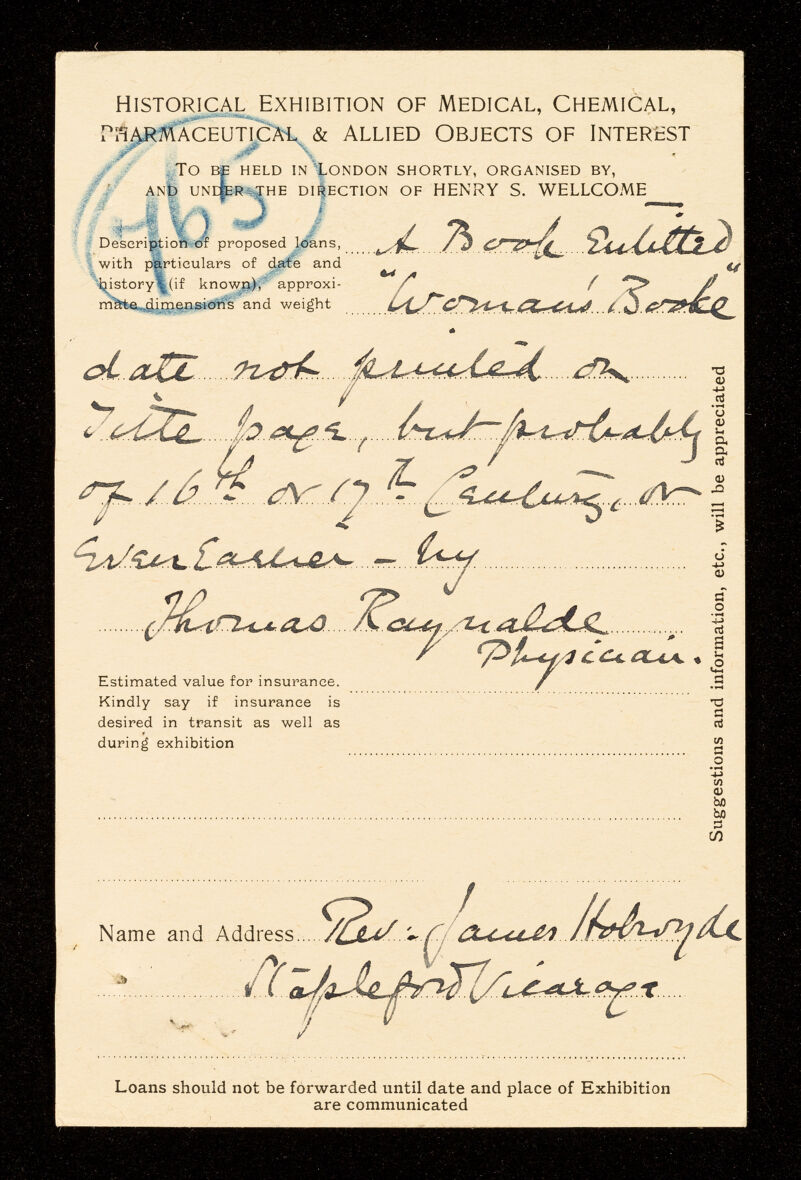 HISTORICAL EXHIBITION OF MEDICAL, CHEMICAL,
PHARMACEUTICAL & ALLIED OBJECTS OF INTEREST
TO BE HELD IN LONDON SHORTLY, ORGANISED BY,
AND UNDER THE DIRECTION OF HENRY S. WELLCOME
465
Description of proposed loans,
with particulars of date and
history (if known), approxi-
mate dimensions and weight
A Book Entitted
"Woman's Booke"
date not printed on
Title page, but probably
of 16th or 17th Century, or
Even Earlier - by
Thomas Raynalde
Physician.
Estimated value for insurance.
Kindly say if insurance is
desired in transit as well as
during exhibition
Suggestions and information, etc., will be appreciated
Name and Address Rev: James Holroyde
Stapleford Vicarage
Loans should not be forwarded until date and place of Exhibition
are communicated